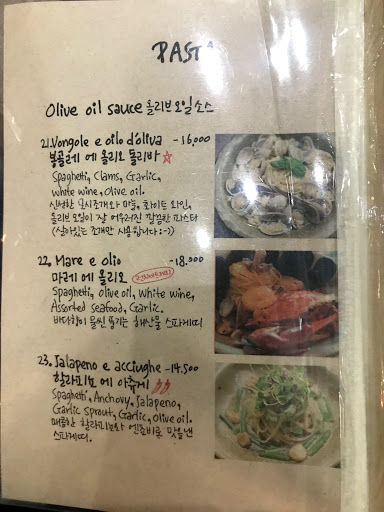 PASTA
Olive oil sauce 올리브오일소스
21. Vongole e oilo d'oliva -16,000
봉골레 에 올리오 돌리바 ☆
Spaghetti, Clams, Garlic,
white wine, Olive oil.
신선한 모시조개와 마늘, 화이트 와인,
올리브 오일이 잘 어우러진 깔끔한 파스타
(살아있는 조개만 사용합니다 :-))
22. Mare e olio -18.000
마레 에 올리오
Spaghetti, olive oil, White wine,
Assorted seafood, Garlic.
바다향이 물씬 풍기는 해산물 스파게띠
23. Jalapeno e acciughe -14.500
할라피뇨 에 아츄게
Spaghetti, Anchovy, Jalapeno,
Garlic sprout, Garlic, Olive oil.
매콤한 할라피뇨와 엔쵸비로 맛을 낸
스파게띠.